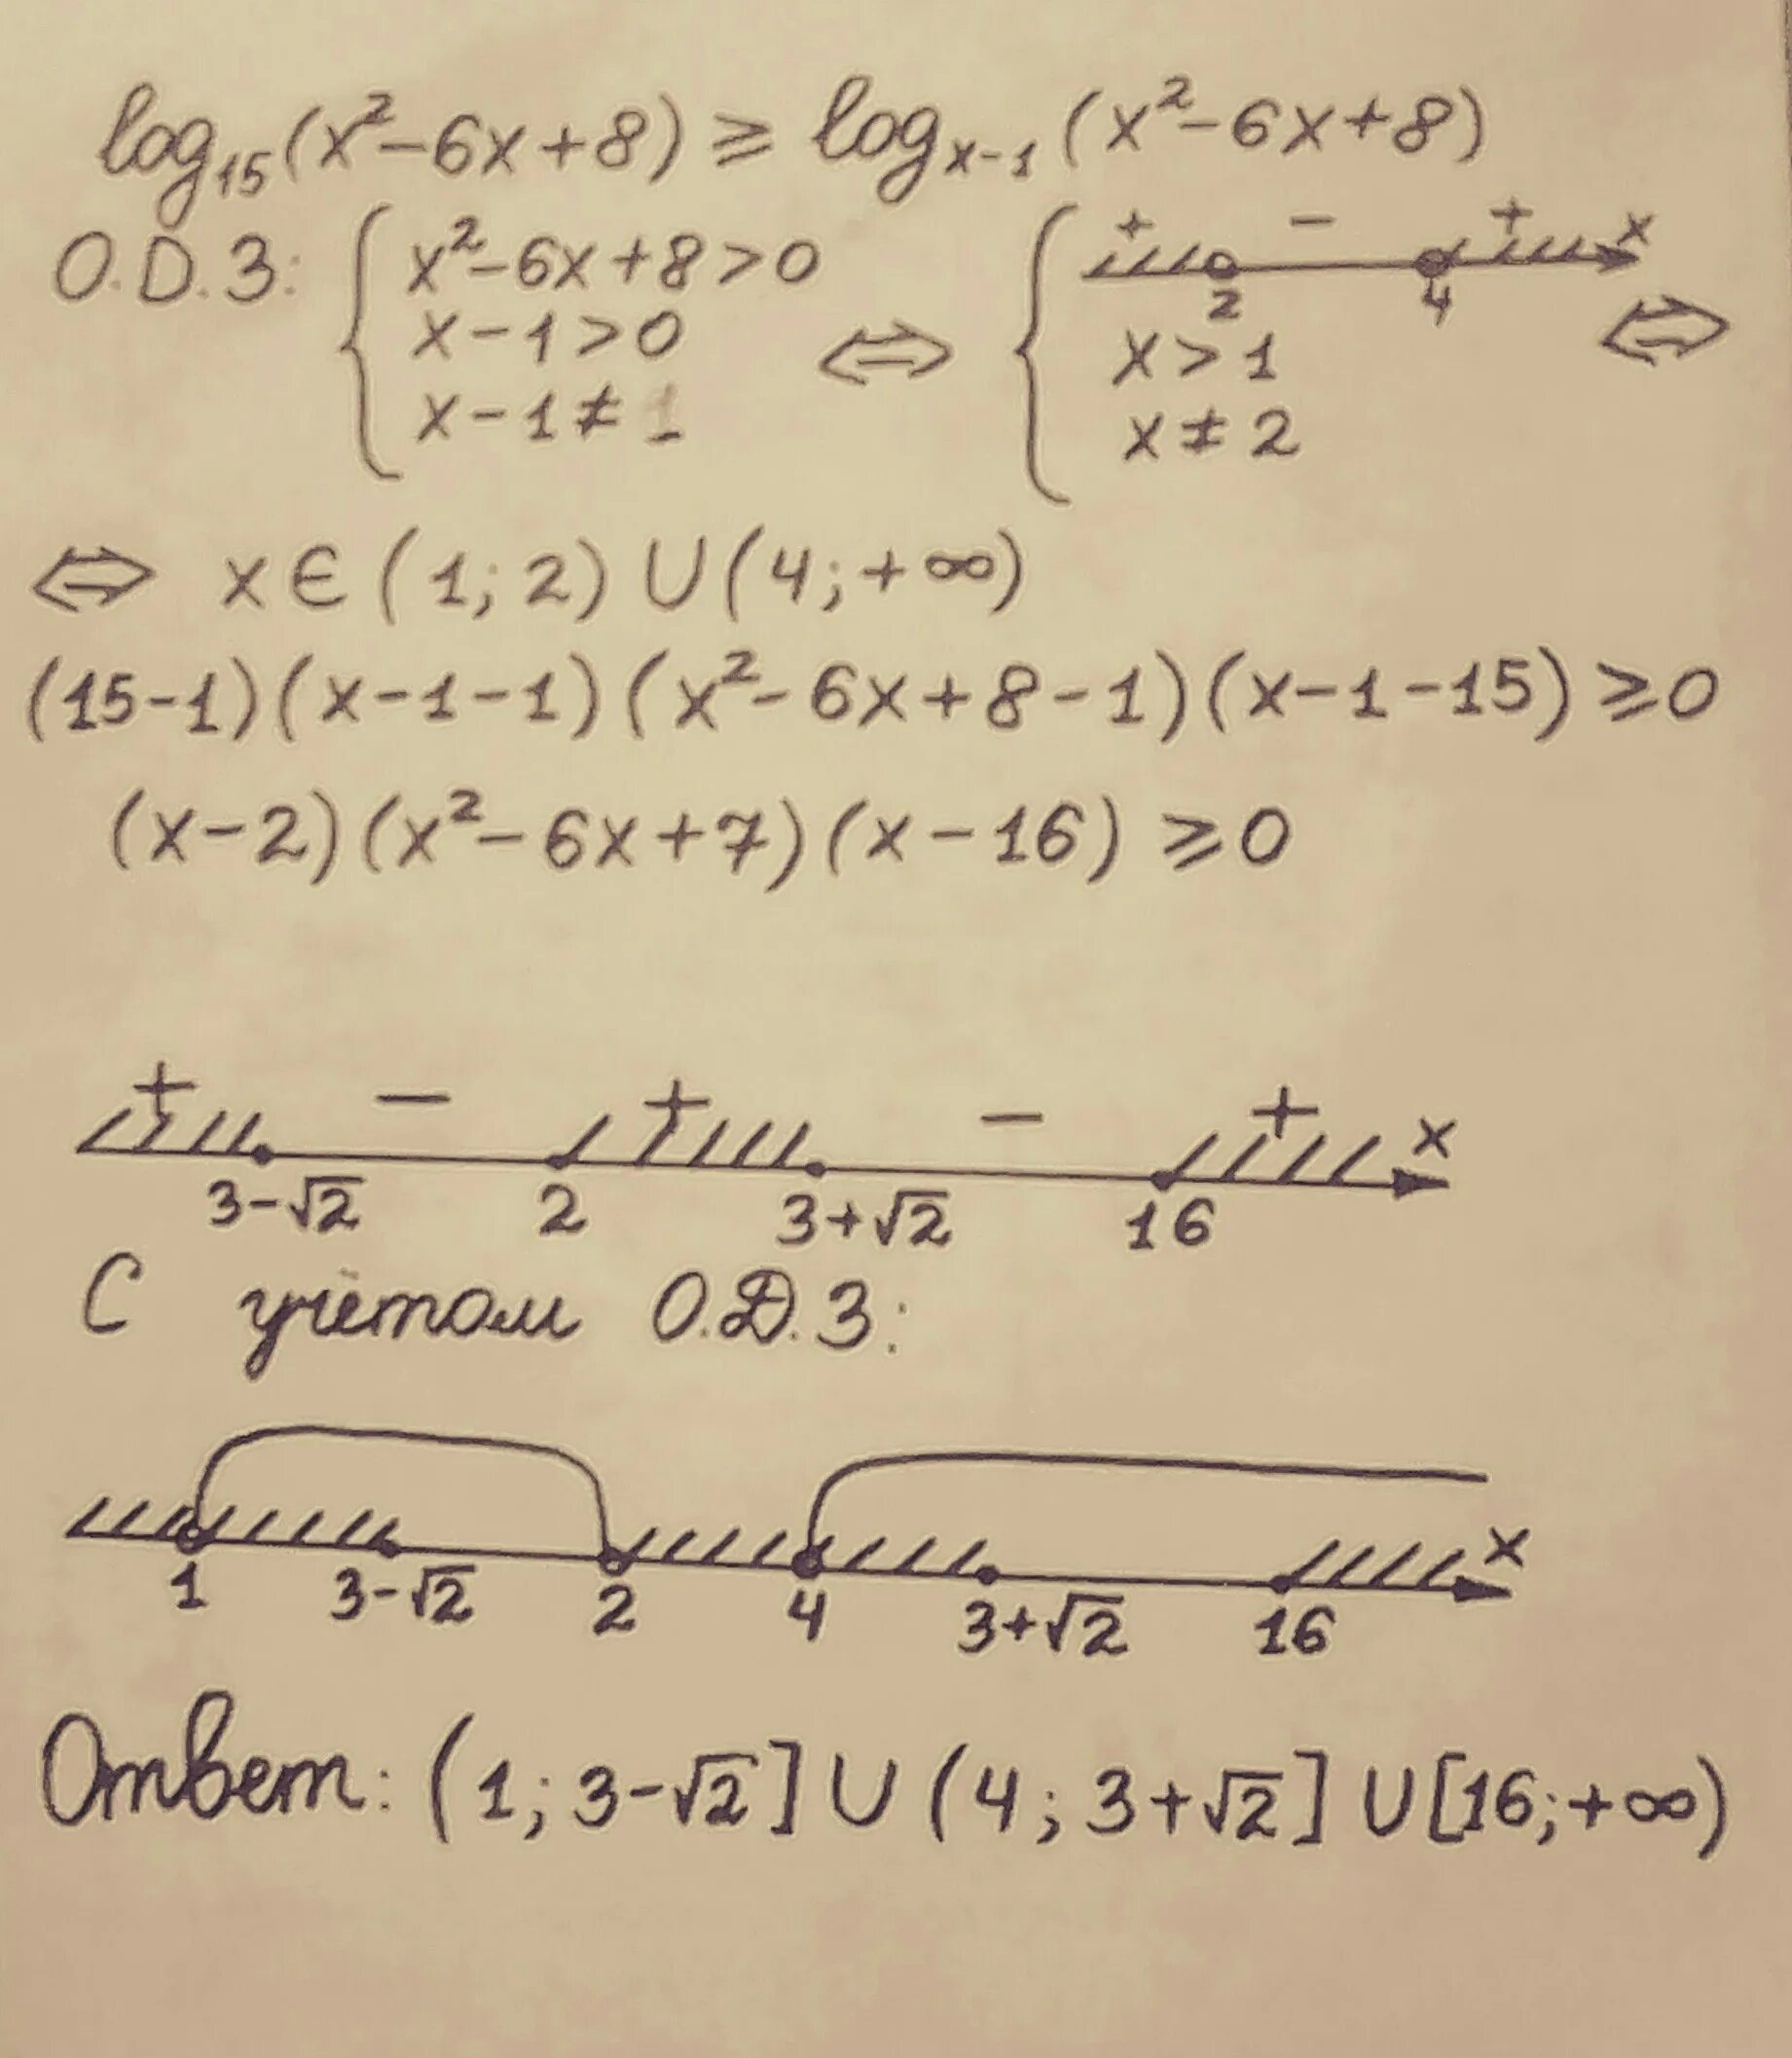 log₁₅(x²-6x+8) ⩾ logₓ₋₁(x²-6x+8)
О.D.З: { x²-6x+8>0 ⇔ { + - + x
2 4 ⇔
x-1>0 x>1
x-1≠1 x≠2
⇔ x∈(1;2)∪(4;+∞)
(15-1)(x-1-1)(x²-6x+8-1)(x-1-15)⩾0
(x-2)(x²-6x+7)(x-16)⩾0
+ - + - + x
3-√2 2 3+√2 16
С учётом О.Д.З:
x
1 3-√2 2 4 3+√2 16
Ответ: (1;3-√2]∪(4;3+√2]∪[16;+∞)